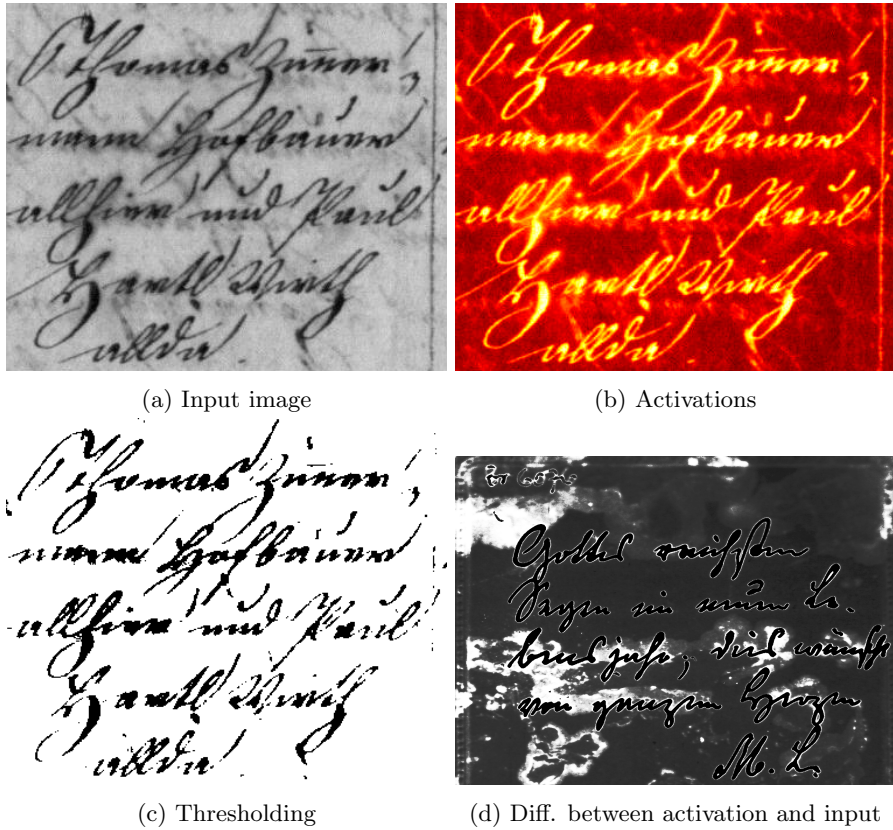 Thomas Zim̄er,
mann Hofbauer
allhier und Paul
Hartl Wirth
allda.
(a) Input image
Thomas Zim̄er,
mann Hofbauer
allhier und Paul
Hartl Wirth
allda.
(b) Activations
Thomas Zim̄er,
mann Hofbauer
allhier und Paul
Hartl Wirth
allda.
(c) Thresholding
Gottes reichsten
Segen im neuen Le-
bensjahr, dies wünscht
von ganzem Herzen
M. L.
(d) Diff. between activation and input